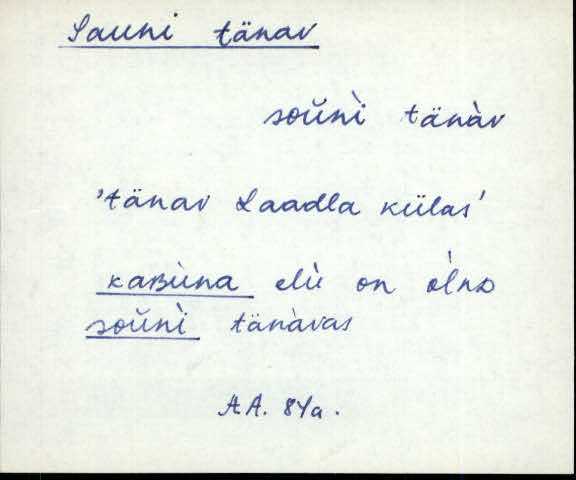 Sauni tänav
soŭnì tänàv
'tänav Laadla külas'
kaʙùna elù on òlnᴅ
soŭnì tänàvas
AA. 84a.